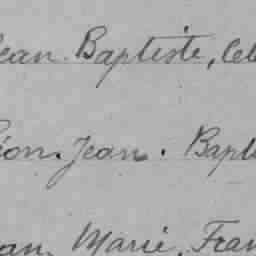 ean Baptiste, Cel
éon. Jean. Bapt
an, Marie, Fran